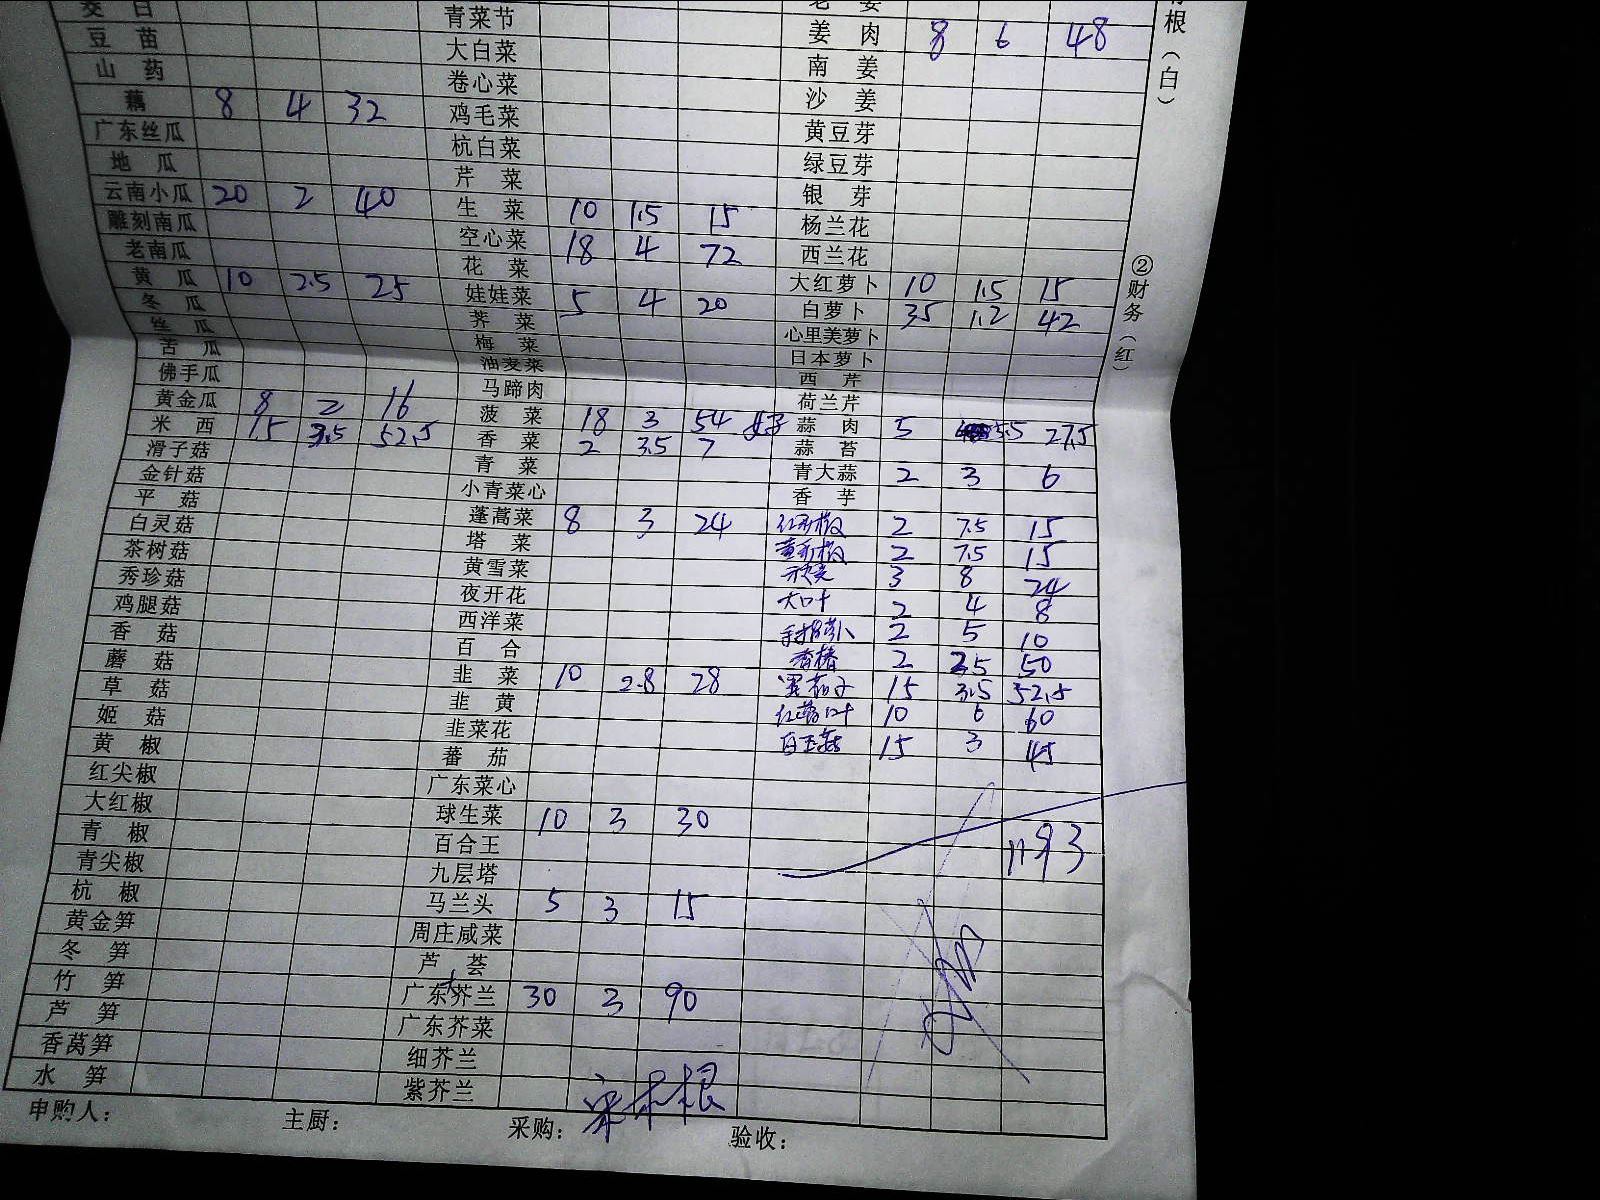 茭白 青菜节
豆苗 大白菜 姜肉 8 6 48
山药 卷心菜 南姜
藕 8 4 32 鸡毛菜 沙姜
广东丝瓜 杭白菜 黄豆芽
地瓜 芹菜 绿豆芽
云南小瓜 20 2 40 生菜 10 1.5 15 银芽
雕刻南瓜 空心菜 18 4 72 杨兰花
老南瓜 花菜 西兰花
黄瓜 10 2.5 25 娃娃菜 5 4 20 大红萝卜 10 1.5 15
冬瓜 荠菜 白萝卜 35 1.2 42
丝瓜 梅菜 心里美萝卜
苦瓜 油麦菜 日本萝卜
佛手瓜 马蹄肉 西芹
黄金瓜 8 2 16 菠菜 18 3 54 荷兰芹
米西 15 3.5 52.5 香菜 2 3.5 7 蒜肉 5 5.5 27.5
滑子菇 青菜 蒜苔
金针菇 小青菜心 青大蒜 2 3 6
平菇 蓬蒿菜 8 3 24 香芋
白灵菇 塔菜 红彩椒 2 7.5 15
茶树菇 黄雪菜 黄彩椒 2 7.5 15
秀珍菇 夜开花 3 8 24
鸡腿菇 西洋菜 大叶 2 4 8
香菇 百合 手指萝卜 2 5 10
蘑菇 韭菜 10 2.8 28 香椿 2 25 50
草菇 韭黄 黑茄子 15 3.5 52.5
姬菇 韭菜花 红薯叶 10 6 60
黄椒 蕃茄 白玉菇 15 3 45
红尖椒 广东菜心
大红椒 球生菜 10 3 30
青椒 百合王 1193
青尖椒 九层塔
杭椒 马兰头 5 3 15
黄金笋 周庄咸菜
冬笋 芦荟
竹笋 广东芥兰 30 3 90
芦笋 广东芥菜
香莴笋 细芥兰
水笋 紫芥兰
申购人： 主厨： 采购： 验收：
根（白）
②财务（红）